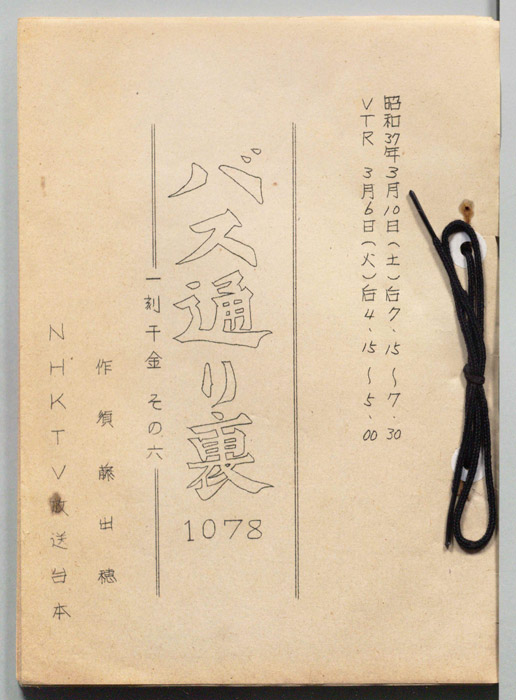 昭和37年3月10日(土)后7.15～7.30
VTR 3月6日(火)后4.15～5.00
バス通り裏
1078
一刻千金 その六
作 須藤出穂
NHKTV放送台本